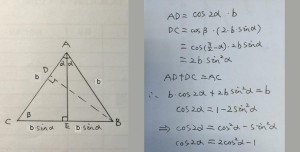 A
α α
D
b b
b
β
C b sinα E b sinα B
AD = cos2α · b
DC = cosβ · (2·b sinα)
= cos(π/2 - α) · 2b sinα
= 2b sin²α
AD + DC = AC
∴ b·cos2α + 2b sin²α = b
cos2α = 1 - 2sin²α
⇒ cos2α = cos²α - sin²α
cos2α = 2cos²α - 1